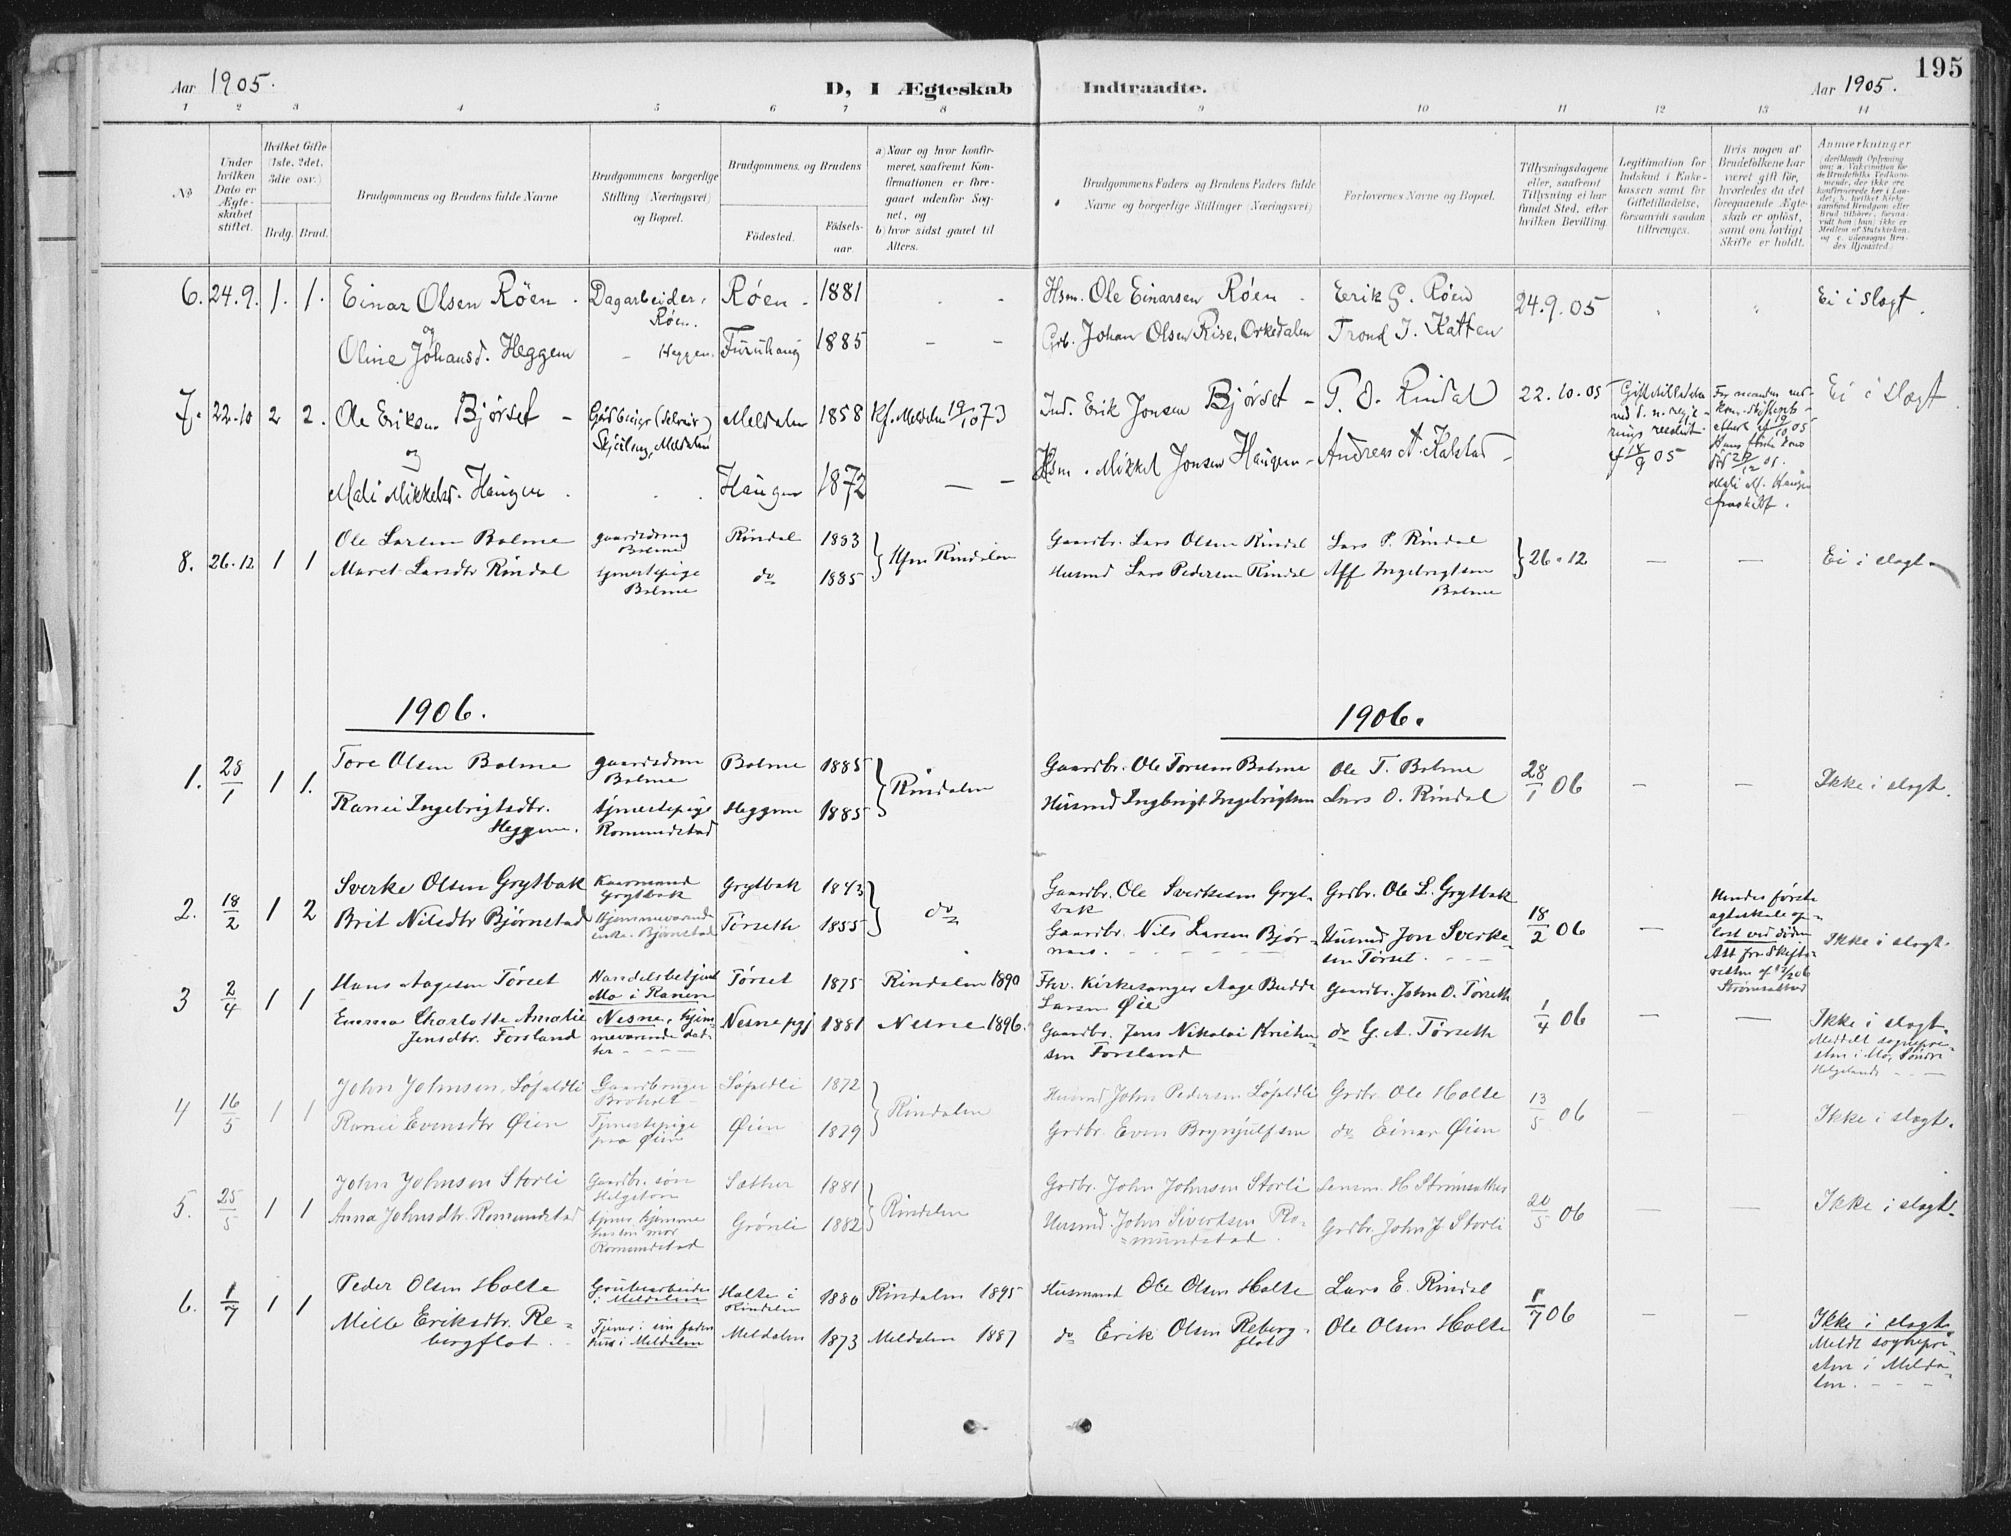 195
Aar 1905.
D, I Ægteskab Indtraadte.
Aar 1905.
1 2 3 4 5 6 7 8 9 10 11 12 13 14
No
Under hvilken Dato er Ægteskabet stiftet.
Hvilket Gifte (1ste, 2det, 3die osv.)
Brdg. Brud.
Brudgommens og Brudens fulde Navne
Brudgommens borgerlige Stilling (Næringsvei) og Bopæl.
Brudgommens og Brudens
Fødested.
Fødselsaar.
a) Naar og hvor konfirmeret, saafremt Konfirmationen er foregaaet udenfor Sognet, og
b) hvor sidst gaaet til Alters.
Brudgommens Faders og Brudens Faders fulde Navne og borgerlige Stillinger (Næringsvei)
Forlovernes Navne og Bopæl.
Tillysningsdagene eller, saafremt Tillysning ei har fundet Sted, efter hvilken Bevilling.
Legitimation for Indskud i Enkekassen samt for Giftetilladelse, forsaavidt saadan tiltrænges.
Hvis nogen af Brudefolkene har været gift før, hvorledes da det foregaaende Ægteskab er opløst, samt om lovligt Skifte er holdt.
Anmærkninger
6. 24.9. 1. 1. Einar Olsen Røen Dagarbeider, Røen. Røen 1881 Hsm. Ole Einarsen Røen Erik G. Røen 24.9.05 Ei i slægt.
og
Oline Johansd. Heggem Heggem. Furuhaug 1885 Gdb. Johan Olsen Rise, Orkedalen Trond J. Katten
7. 22.10 2 2. Ole Eriksen Bjørset Gårdbruger (selveier) Meldalen 1858 Kf. Meldalen 19/10 73 Ind. Erik Jonsen Bjørset P. O. Rindal 22.10.05 Ei i slægt
og
Mali Mikkelsd. Haugen Haugen 1872 Hsm. Mikkel Jonsen Haugen Andreas A. Kalstad
8. 26.12 1 1 Ole Larsen Bolme gaardsdreng Bolme Rindal 1883 Kfm Rindalen Gaardbr. Lars Olsen Rindal Lars P. Rindal 26.12 Ei i slægt.
Maret Larsdtr Rindal tjenestepige Bolme do 1885 Husmd Lars Pedersen Rindal Aff Ingebrigtsen Bolme
1906. 1906.
1. 28/1 1 1. Tore Olsen Bolme gaardsdren Bolme Bolme 1885 Rindalen Gaardbr. Ole Toresen Bolme Ole T. Bolme 28/1 06 Ikke i slægt.
Ranei Ingebrigtsdtr. Heggem. tjenestepige Romundstad Heggem 1885 Husmd Ingbrigt Ingebrigtsen Lars O. Rindal
2. 18/2 1 2 Sverke Olsen Grytbak Kaarmand Grytbak Grytbak 1843 do Gaardbr. Ole Sverkesen Grytbak Grdbr. Ole L. Grytbak 18/2 06 Hendes første ægteskab opløst ved døden Att fra Skifteretten af 17/2 06 Strømsætbad Ikke i slægt.
Brit Nilsdtr Bjørnstad Hjemmeværende enke. Bjørnstad Tørseth 1855 Gaardbr. Nils Larsen Bjørnaas. Husmd Jon Sverkesen Tørset.
3 2/4 1 1 Hans Aagesen Tørset Handelsbetjent Mo i Ranen Tørset 1875 Rindalen 1890 Fhv. Kirkesanger Aage Budde Larsen Øie Gaardbr. John O. Tørseth 1/4 06 Ikke i slægt.
Emma Charlotte Amalie Jensdtr. Forsland Nesne, hjemmeværende datter Nesne pgj 1881 Nesne 1896. Gaardbr. Jens Nikolai Kristensen Forsland do G. A. Tørseth Meddelt sognepresten i Mo, Søndre Helgelands
4 16/5 1 1 John Johnsen Løfaldli Gaardbruger Broholt Løfaldli 1872 Rindalen Husmd John Pedersen Løfaldli Grdbr. Ole Holte 13/5 06 Ikke i slægt.
Ranei Evensdtr Øien Tjenestepige paa Øien Øien 1879 Grdbr. Even Brynjulfsen do Einar Øien
5. 25/5 1 1 John Johnsen Storli Gaardbr. søn Helgetun Sæther 1881 Rindalen Grdbr. John Johnsen Storli Lensm. H Strømsæther 20/5 06 Ikke i slægt.
Anna Johnsdtr. Romundstad tjener hjemme hos sin mor Romundstad Grønli 1882 Husmd. John Sivertsen Romundstad. Grdbr. John J. Storli
6. 1/7 1 1 Peder Olsen Holte Grubearbeider i Meldalen Holte i Rindalen 1880 Rindalen 1895 Husmand Ole Olsen Holte Lars E. Rindal 1/7 06 Ikke i slægt.
Mille Eriksdtr. Rebergflot Tjener i sin faders hus i Meldalen Meldalen 1873 Meldalen 1887 do Erik Olsen Rebergflot Ole Olsen Holte Meldt sognepresten i Meldalen.